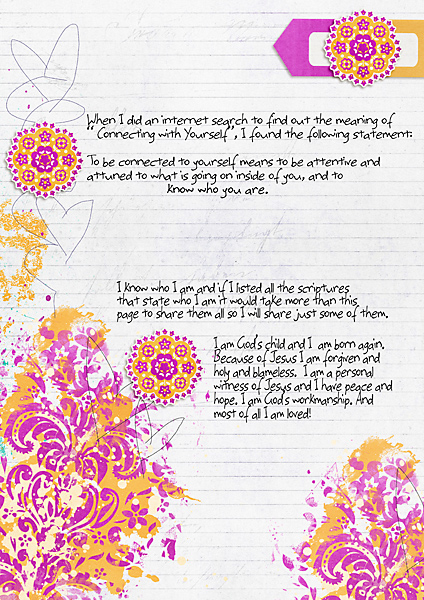 When I did an internet search to find out the meaning of
"Connecting with Yourself", I found the following statement:
To be connected to yourself means to be attentive and
attuned to what is going on inside of you, and to
know who you are.
I know who I am and if I listed all the scriptures
that state who I am it would take more than this
page to share them all so I will share just some of them.
I am God's child and I am born again.
Because of Jesus I am forgiven and
holy and blameless. I am a personal
witness of Jesus and I have peace and
hope. I am God's workmanship. And
most of all I am loved!